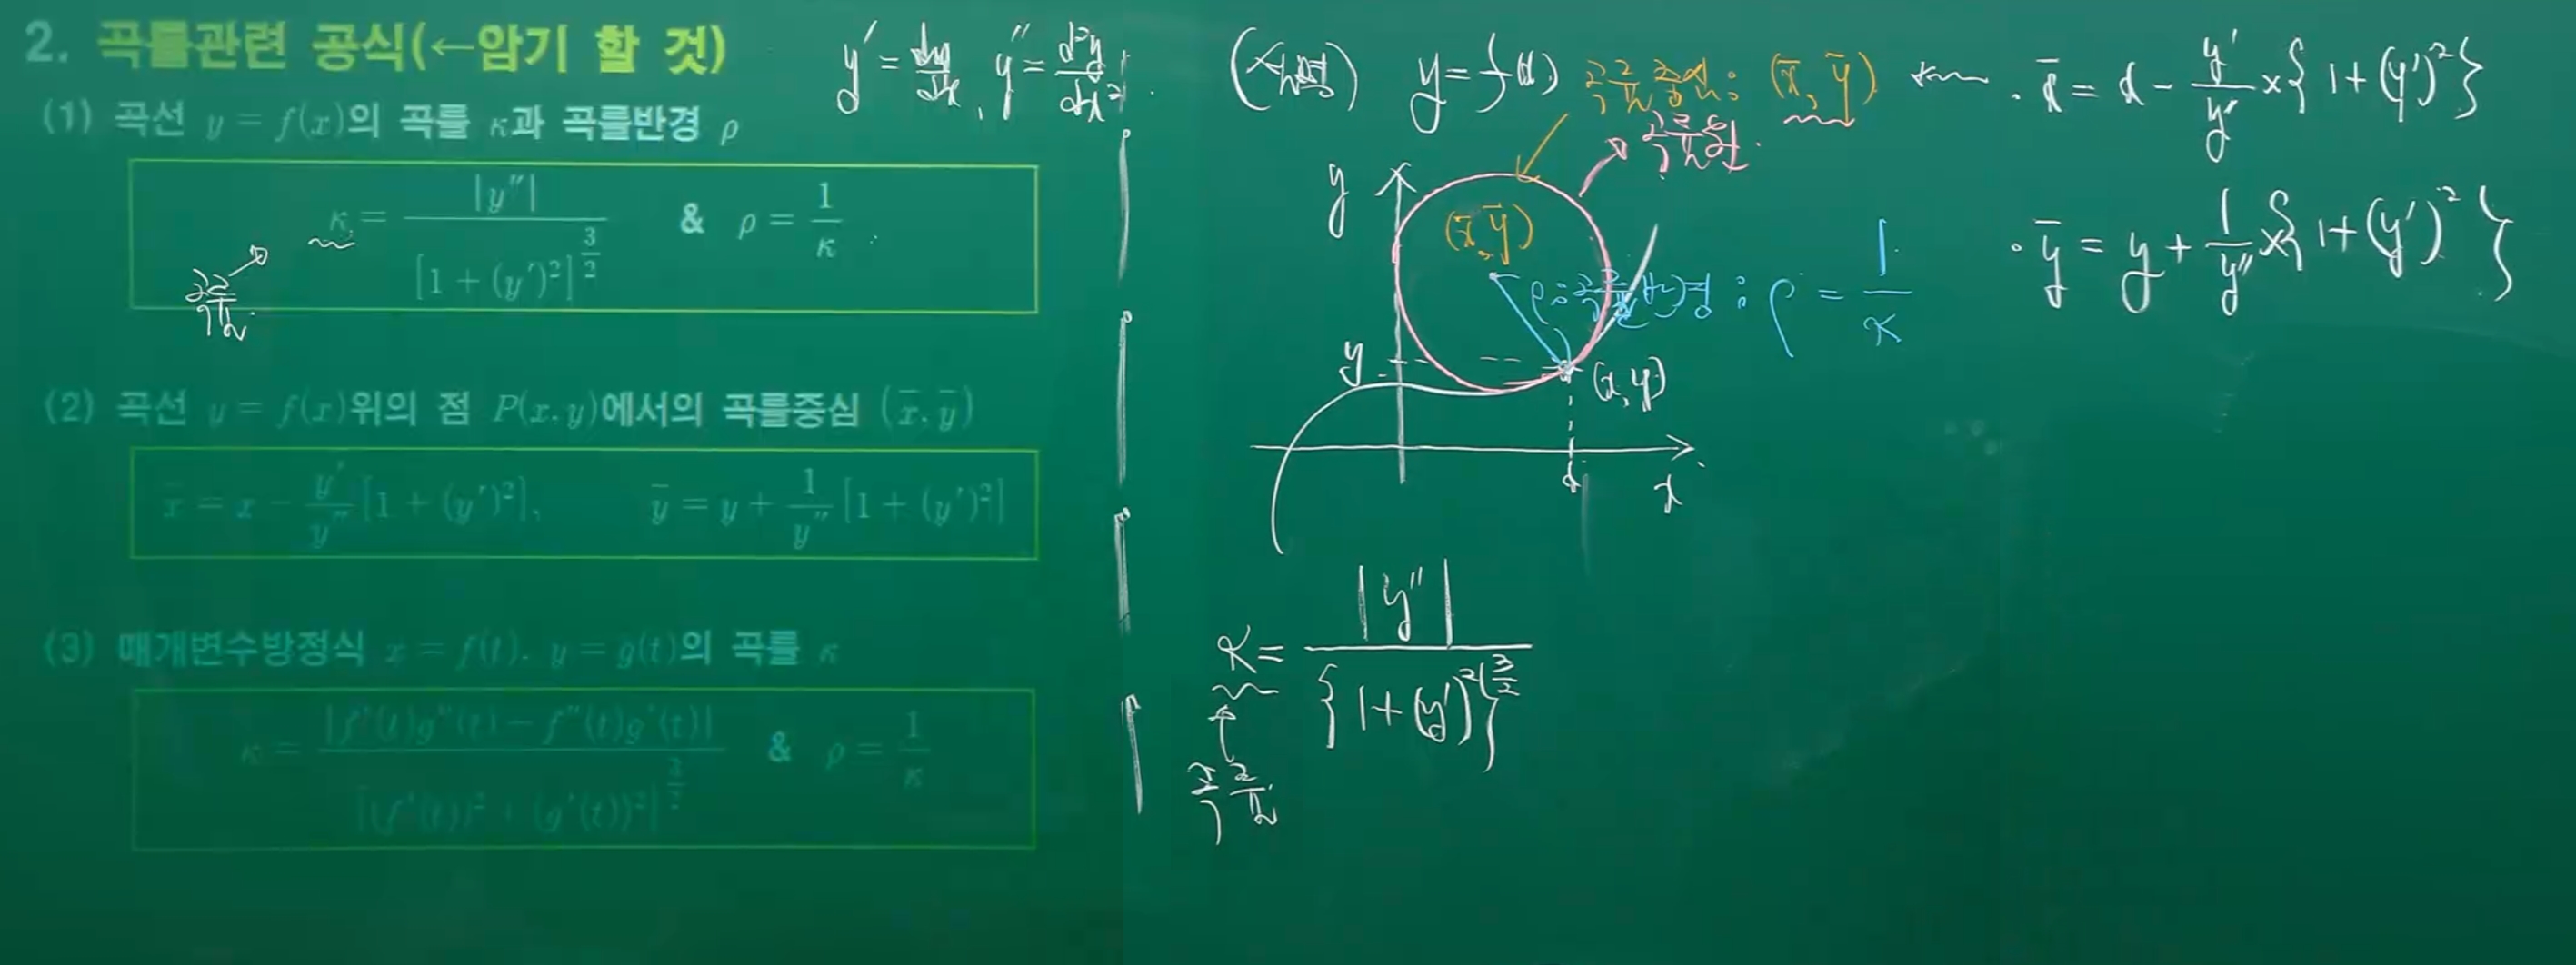 2. 곡률관련 공식(←암기 할 것)
y' = dy/dx, y'' = d²y/dx².
(1) 곡선 y = f(x)의 곡률 κ과 곡률반경 ρ
κ = |y''| / [1 + (y')²]^(3/2) & ρ = 1/κ
곡률
(2) 곡선 y = f(x)위의 점 P(x, y)에서의 곡률중심 (x̄, ȳ)
x̄ = x − y'/y'' [1 + (y')²], ȳ = y + 1/y'' [1 + (y')²]
(3) 매개변수방정식 x = f(t), y = g(t)의 곡률 κ
κ = |f'(t)g''(t) − f''(t)g'(t)| / [(f'(t))² + (g'(t))²]^(3/2) & ρ = 1/κ
(설명) y = f(x)
곡률중심: (x̄, ȳ)
곡률원.
· x̄ = x − y'/y'' × {1 + (y')²}
· ȳ = y + 1/y'' × {1 + (y')²}
y
(x̄, ȳ)
ρ: 곡률반경: ρ = 1/κ
y
(x, y)
x
x
κ = |y''| / {1 + (y')²}^(3/2)
곡률